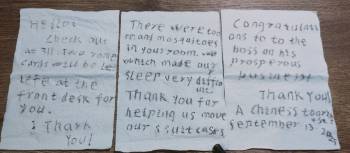 Hello!
Check out
at 11. Two room
cards will be le
left at the
front desk for
you.
: Thank
You!
There were too
many mosquitoes
in your room.
which made our
sleep very difficu
ult.
Thank you for
helping us move
our suitcases
Congratulati
ons to to the
boss on his
prosperous
business
Thank You!
A Chiness tourist
September 13